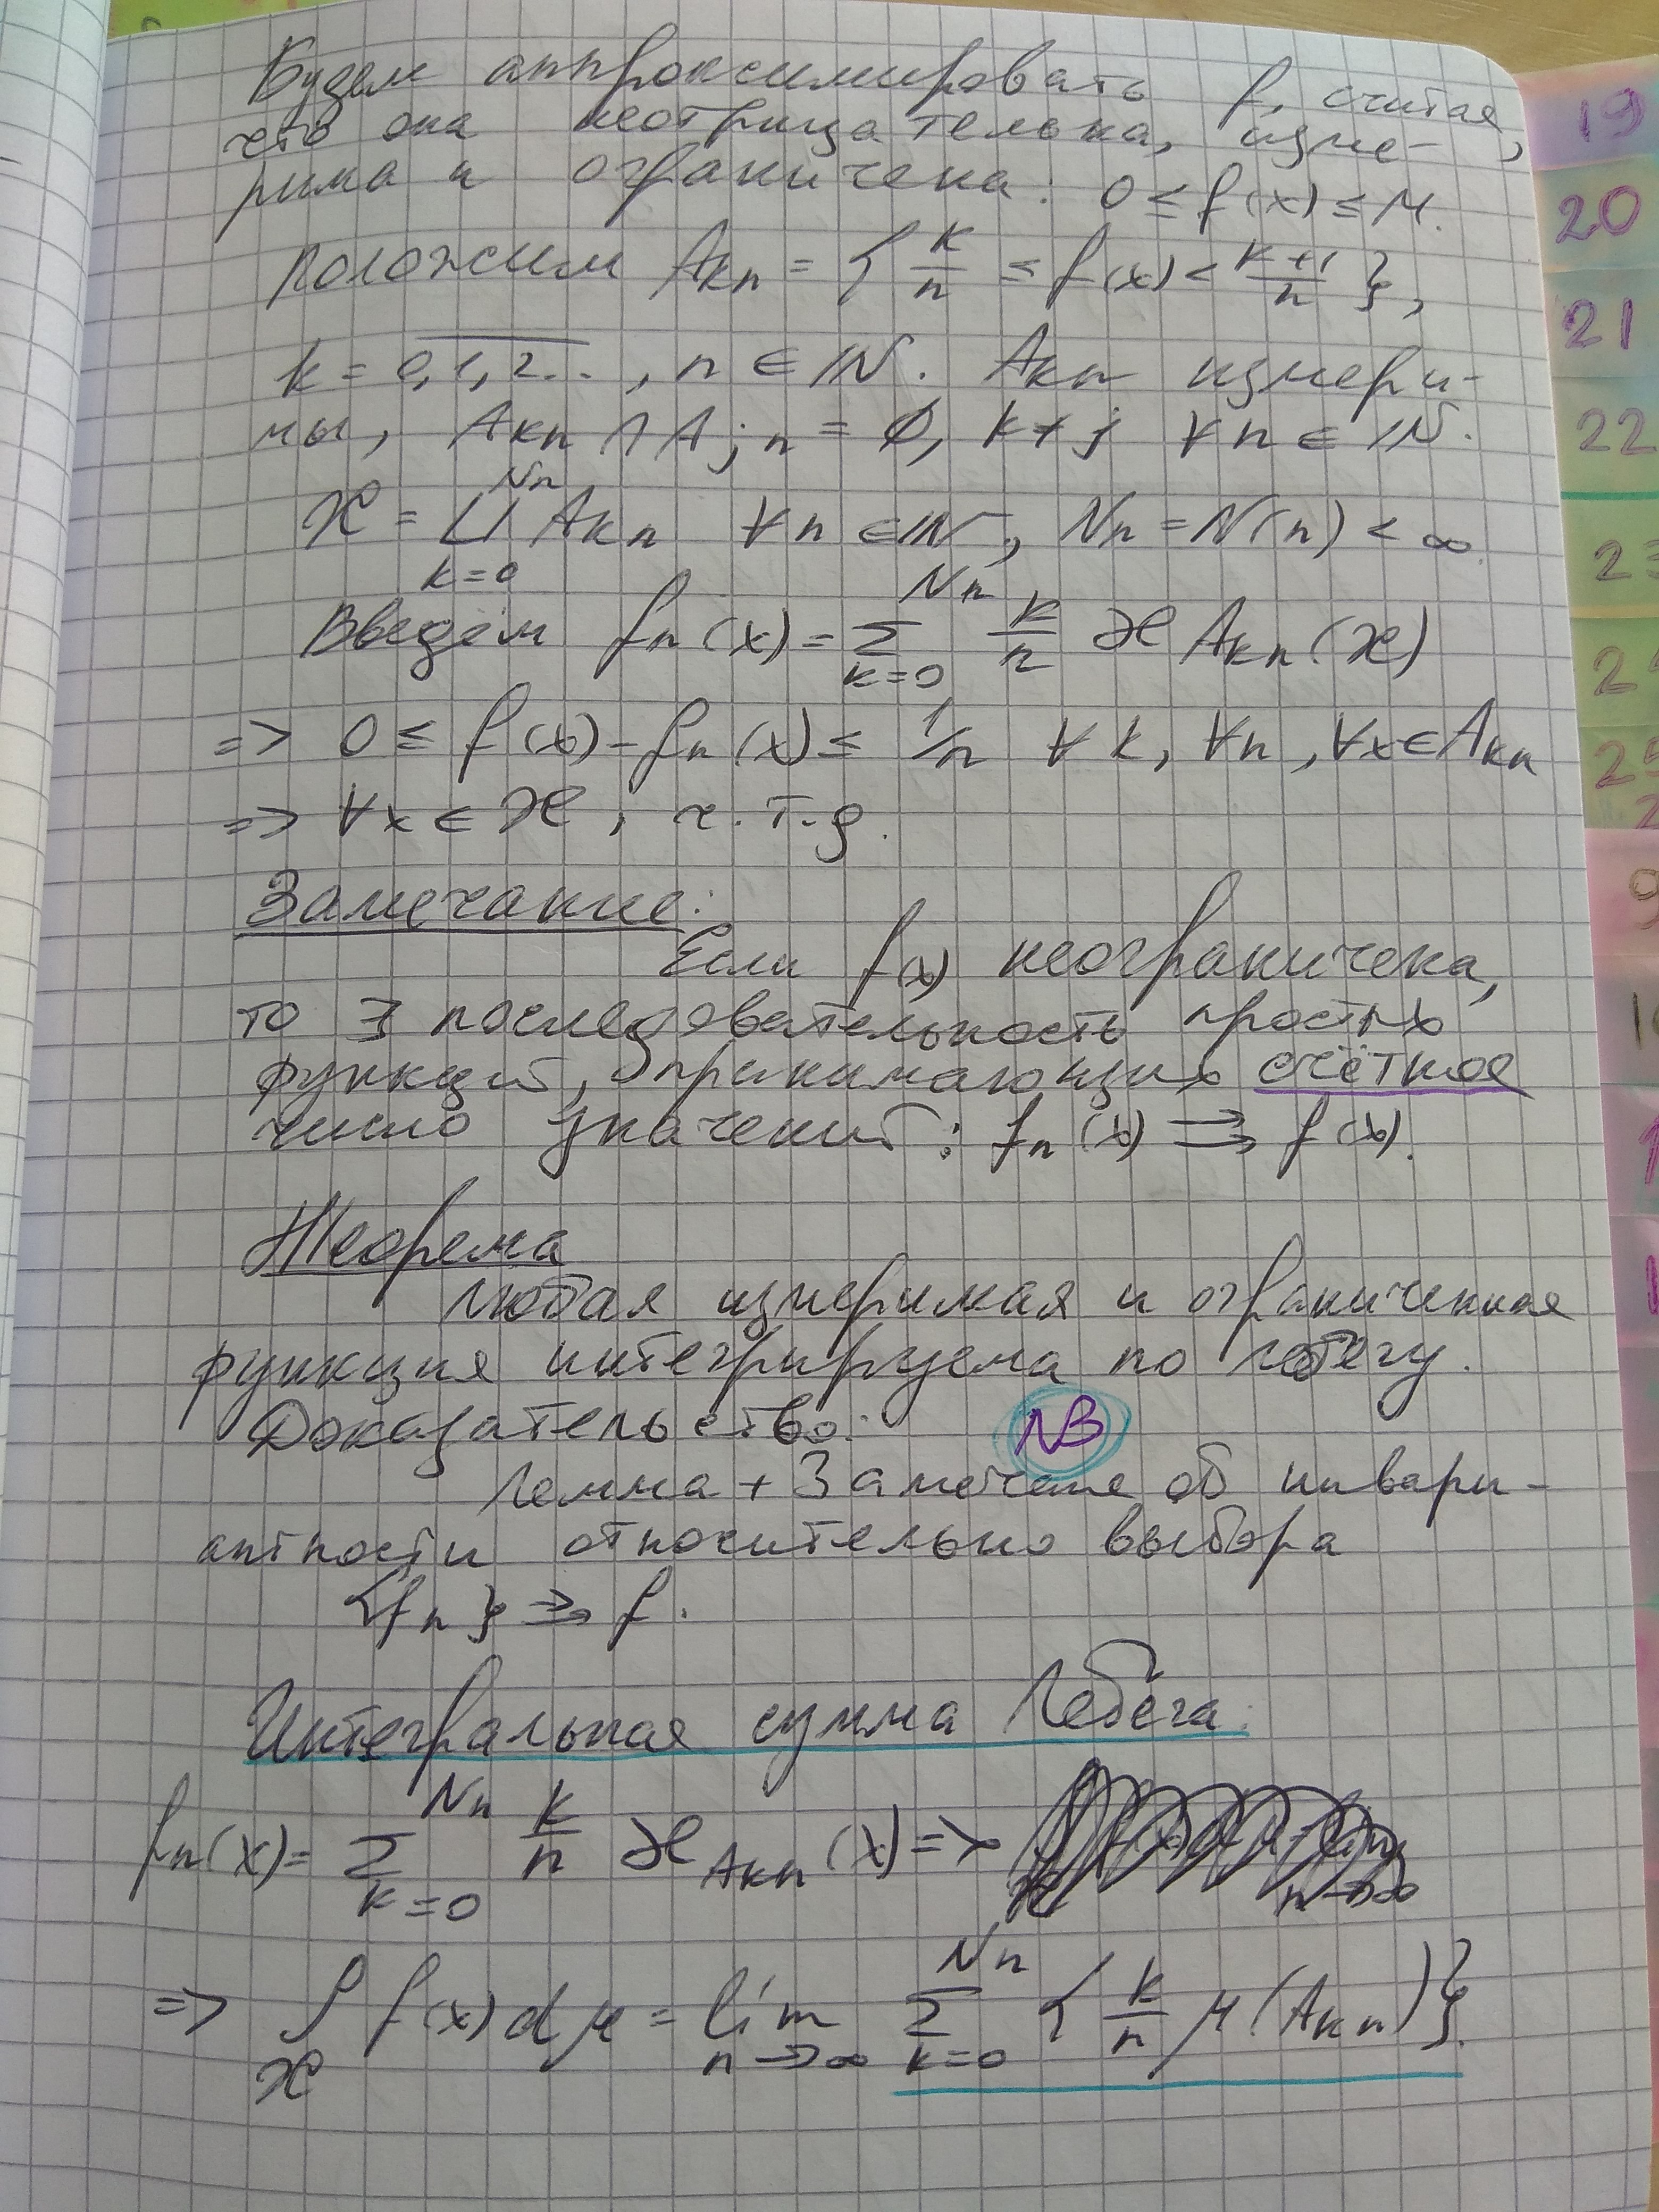 Будем аппроксимировать f, считая,
что она неотрицательна, изме-
рима и ограничена: 0 ≤ f(x) ≤ M.
Положим Aₖₙ = { k/n ≤ f(x) < (k+1)/n },
k = 0,1,2..., n ∈ ℕ. Aₖₙ измери-
мы, Aₖₙ ∩ Aⱼₙ = ∅, k ≠ j ∀n ∈ ℕ.
𝒳 = ⊔_{k=0}^{Nₙ} Aₖₙ ∀n ∈ ℕ, Nₙ = N(n) < ∞.
Введём fₙ(x) = Σ_{k=0}^{Nₙ} k/n ϰ Aₖₙ(x)
=> 0 ≤ f(x) - fₙ(x) ≤ 1/n ∀k, ∀n, ∀x ∈ Aₖₙ
=> ∀x ∈ 𝒳, ч.т.д.
Замечание:
Если f(x) неограничена,
то ∃ последовательность простых
функций, принимающих счётное
число значений: fₙ(x) ⇉ f(x).
Теорема
Любая измеримая и ограниченная
функция интегрируема по Лебегу.
Доказательство: NB
Лемма + Замечание об инвари-
антности относительно выбора
{fₙ} ⇉ f.
Интегральная сумма Лебега:
fₙ(x) = Σ_{k=0}^{Nₙ} k/n ϰ_{Aₖₙ}(x) =>
n→∞
=> ∫_𝒳 f(x)dμ = lim_{n→∞} Σ_{k=0}^{Nₙ} { k/n μ(Aₖₙ)}.
19
20
21
22
23
2
25
2
9
1
1
1